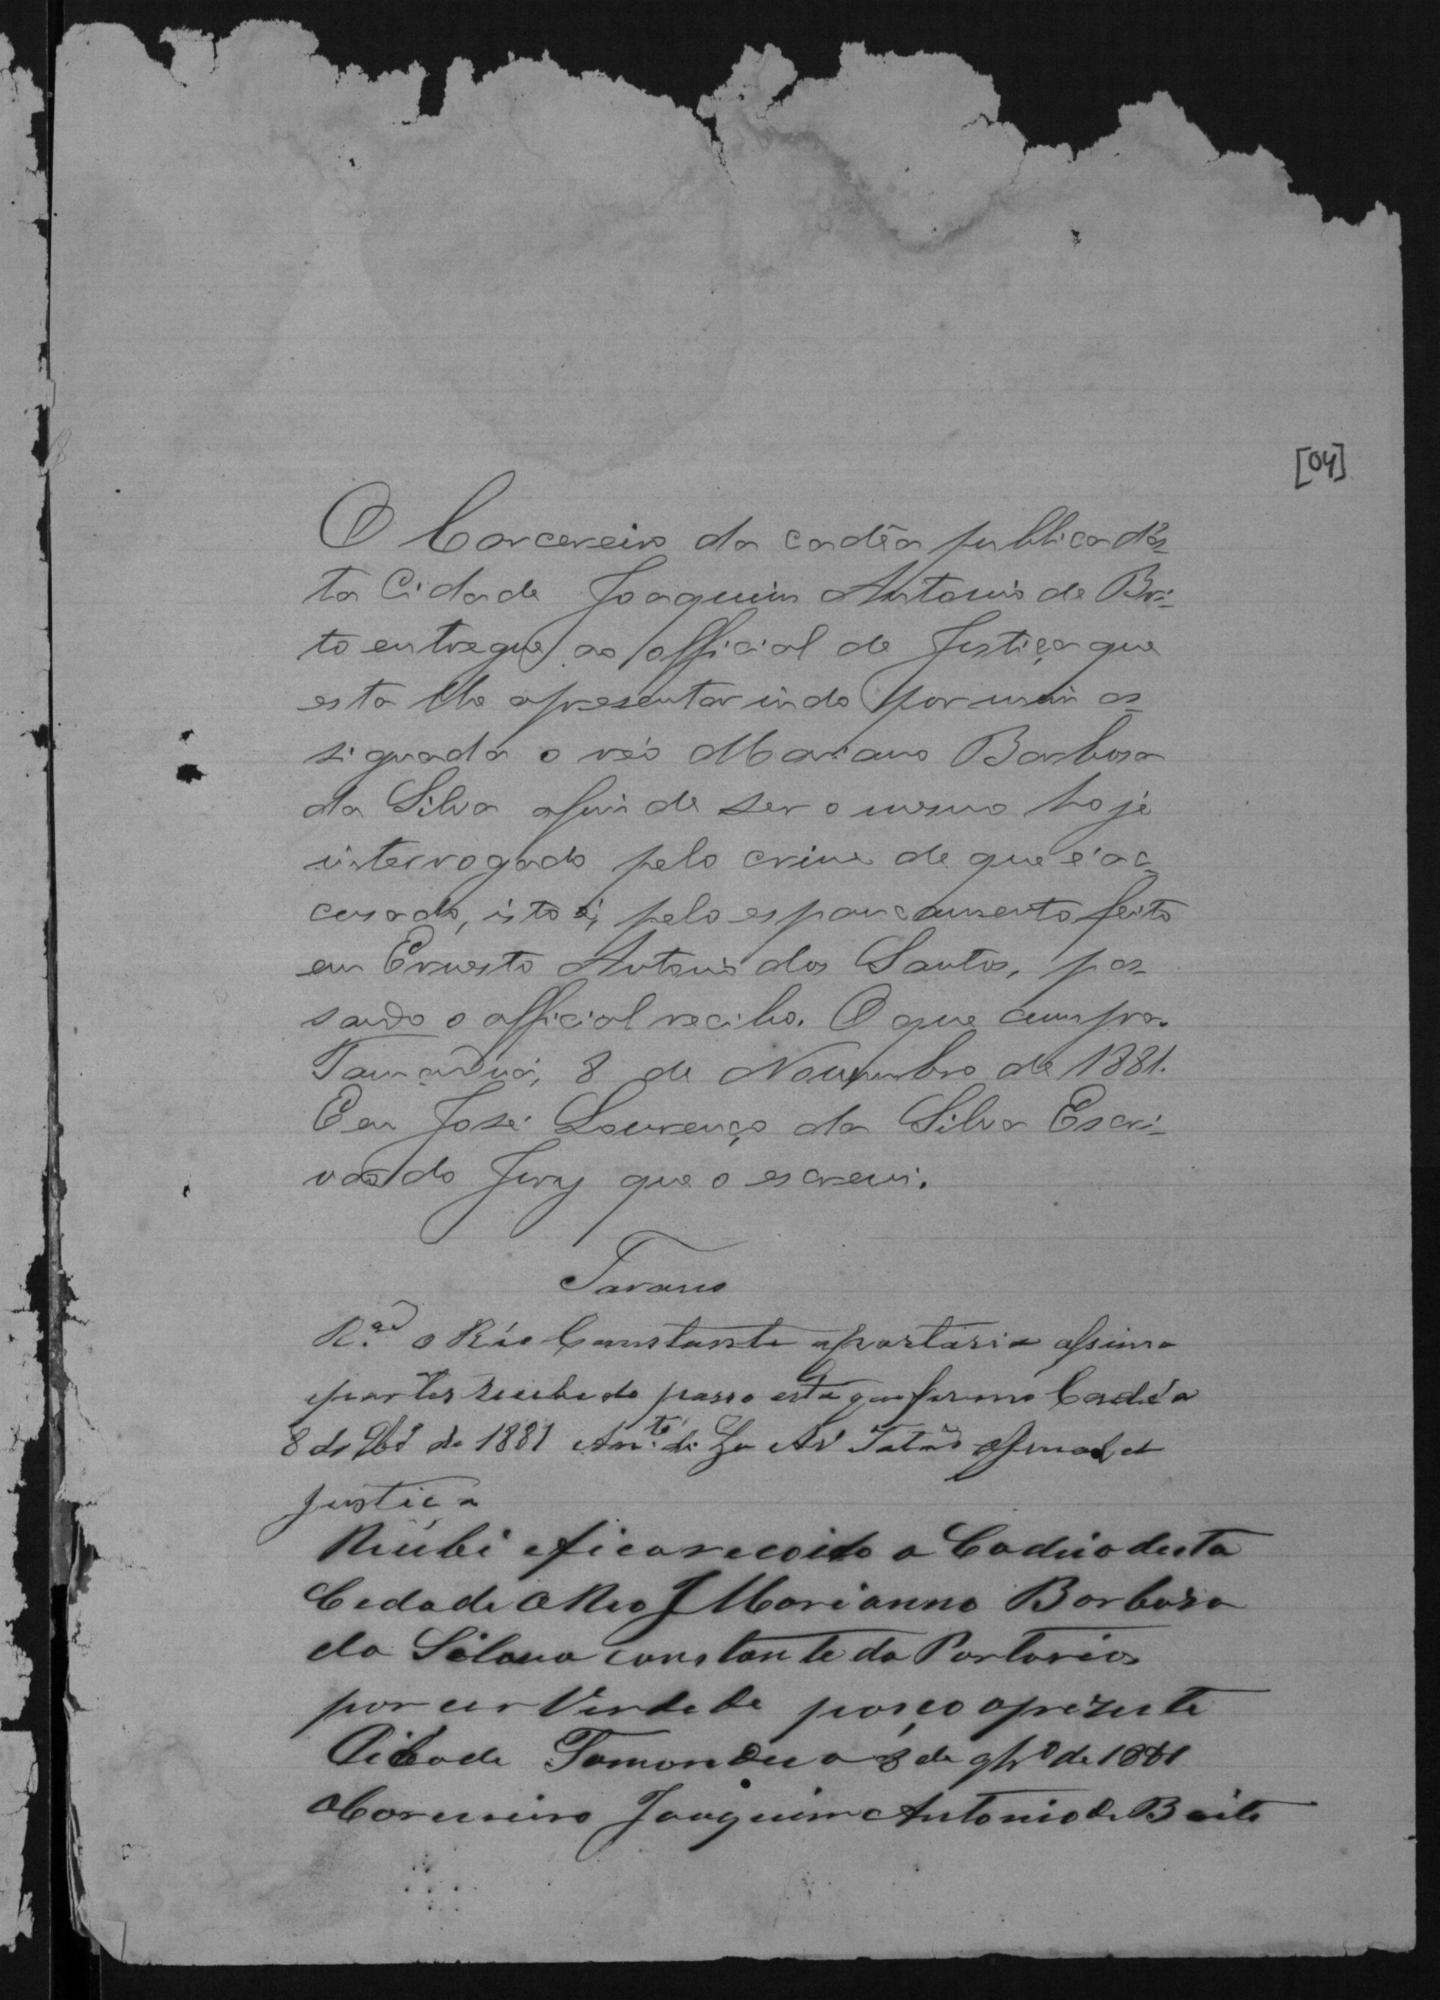 [04]
O Carcereiro da cadêa publica des-
ta Cidade Joaquim Antonio de Bri-
to entregue ao official de Justiça que
esta lhe apresentar indo por mim as-
signada o réo Mariano Barbosa
da Silva afim de ser o mesmo hoje
interrogado pelo crime de que é ac-
cusado, isto é, pelo espancamento feito
em Ernesto Antonio dos Santos, pas-
sando o official recibo. O que cumpra.
Tamanduá, 8 de Novembro de 1881.
Eu José Lourenço da Silva Escri-
vão do Jury que o escrevi.
Tavares
o Réo Constante aportaria assima
recebido passo este que firmo Cadêa
8 de 9bro de 1881 Justiça
Recubi eficarecoido a Cadeia desta
Cedade o Reo Marianno Barboza
da Silava constante da Portaria
por cer Verdade passo aprezente
Cidade Tamandua 8 de 9bro de 1881
O Carcereiro Joaquim Antonio de Brito